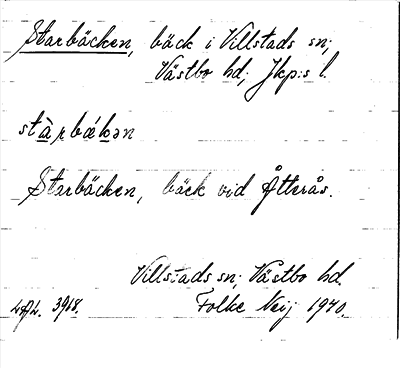 Starbäcken, bäck i Villstads sn;
Västbo hd; Jkp:s l.
stàrbǽkən
Starbäcken, bäck vid Åtterås.
Villstads sn; Västbo hd.
Folke Neij 1940.
3968.